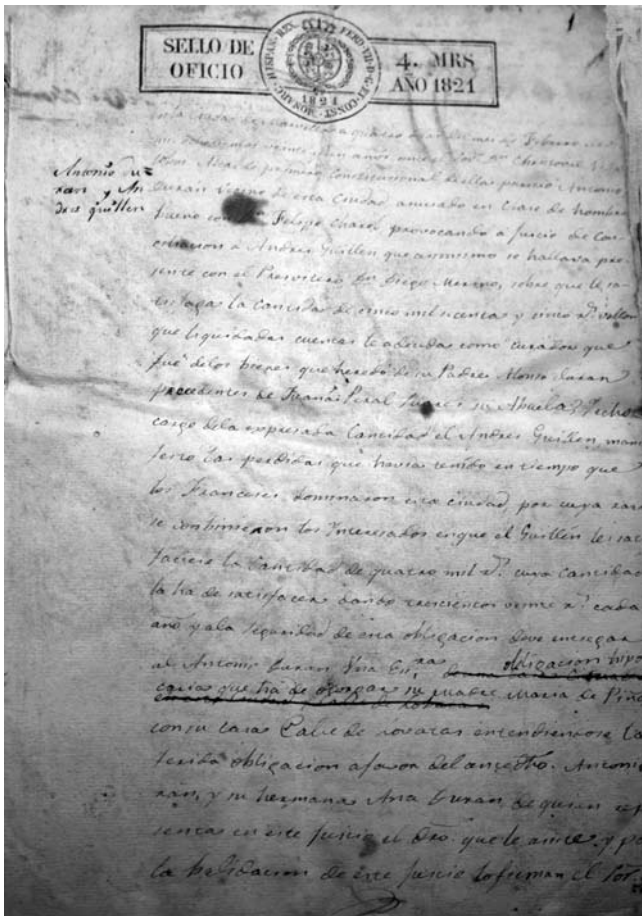 SELLO DE OFICIO
HISPAN. REX. FERD. VII. D. G. ET CONST. MONARC.
1821
4. MRS
AÑO 1821
Antonio Du-
ran y An
dres Guillen
quatro dias del mes de Febrero de
veinte y un años, ante el Christoval
Alcalde primero Constitucional de ella, parecio Antonio
Duran vecino de esta Ciudad asociado en Clase de hombre
bueno con Felipe Chares, provocando a juicio de Con-
ciliacion a Andres Guillen que asimismo se hallava pre-
sente con el Presvitero Dn Diego Moreno, sobre que le sa-
tisfaga la Cantidad de cinco mil y cinco rs. vellon
que liquidadas cuentas le adeudas como curador que
fué de los bienes que heredó de su Padre Alonso Duran
procedentes de Peral su Abuela: Hecho
cargo de la expresada Cantidad el Andres Guillen, mani
festo las perdidas que havia tenido en tiempo que
los Franceses dominaron esta ciudad, por cuya razn
se combinieron los Interesados en que el Guillen le sat
faciese la Cantidad de quatro mil rs. cuya Cantidad
la ha de satisfacer dando trescientos veinte rs. cada
año y a la seguridad de esta obligacion deve entregar
al Antonio Duran Una obligacion hipo
caria que ha de otorgar su madre Maria de
con su casa Calle de entendiendose la
ferida obligacion a favor del Antonio
ran, y su hermana Ana Duran, de quien rep
senta en este Juicio el dro. que le asiste, y pa
la balidacion de este juicio lo firman el Sor.